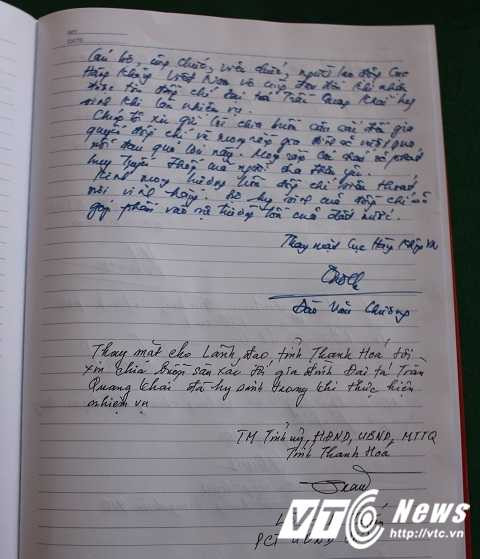 NO:
DATE:
Cán bộ, công chức, viên chức, người lao động Cục
Hàng Không Việt Nam vô cùng đau đớn khi nhận
được tin đồng chí đại tá Trần Quang Khải hy
sinh khi làm nhiệm vụ.
Chúng tôi xin gửi lời chia buồn sâu sắc đến gia
quyến đồng chí và mong rằng gia đình sẽ vượt qua
nỗi đau quá lớn này. Mong rằng các cháu sẽ phát
huy truyền thống của người cha thân yêu.
Kính mong hương hồn đồng chí siêu thoát
nơi vĩnh hằng. Sự hy sinh của đồng chí sẽ
góp phần vào sự trường tồn của đất nước.
Thay mặt Cục Hàng Không VN
Đào Văn Chương
Thay mặt cho Lãnh đạo tỉnh Thanh Hoá tôi
xin chia buồn sâu sắc tới gia đình Đại tá Trần
Quang Khải đã hy sinh trong khi thực hiện
nhiệm vụ
TM Tỉnh uỷ, HĐND, UBND, MTTQ
Tỉnh Thanh Hoá
VTC News
http://vtc.vn
PCT UBND